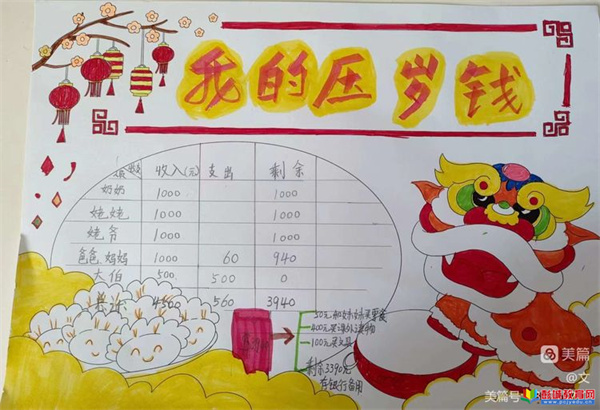 我的压岁钱
收入(元) 支出 剩余
奶奶 1000 1000
姥姥 1000 1000
姥爷 1000 1000
爸爸妈妈 1000 60 940
大伯 500 500 0
4500 560 3940
400元
100元买文具
剩余3390元
存银行备用
美篇
@文
美篇号
教育网